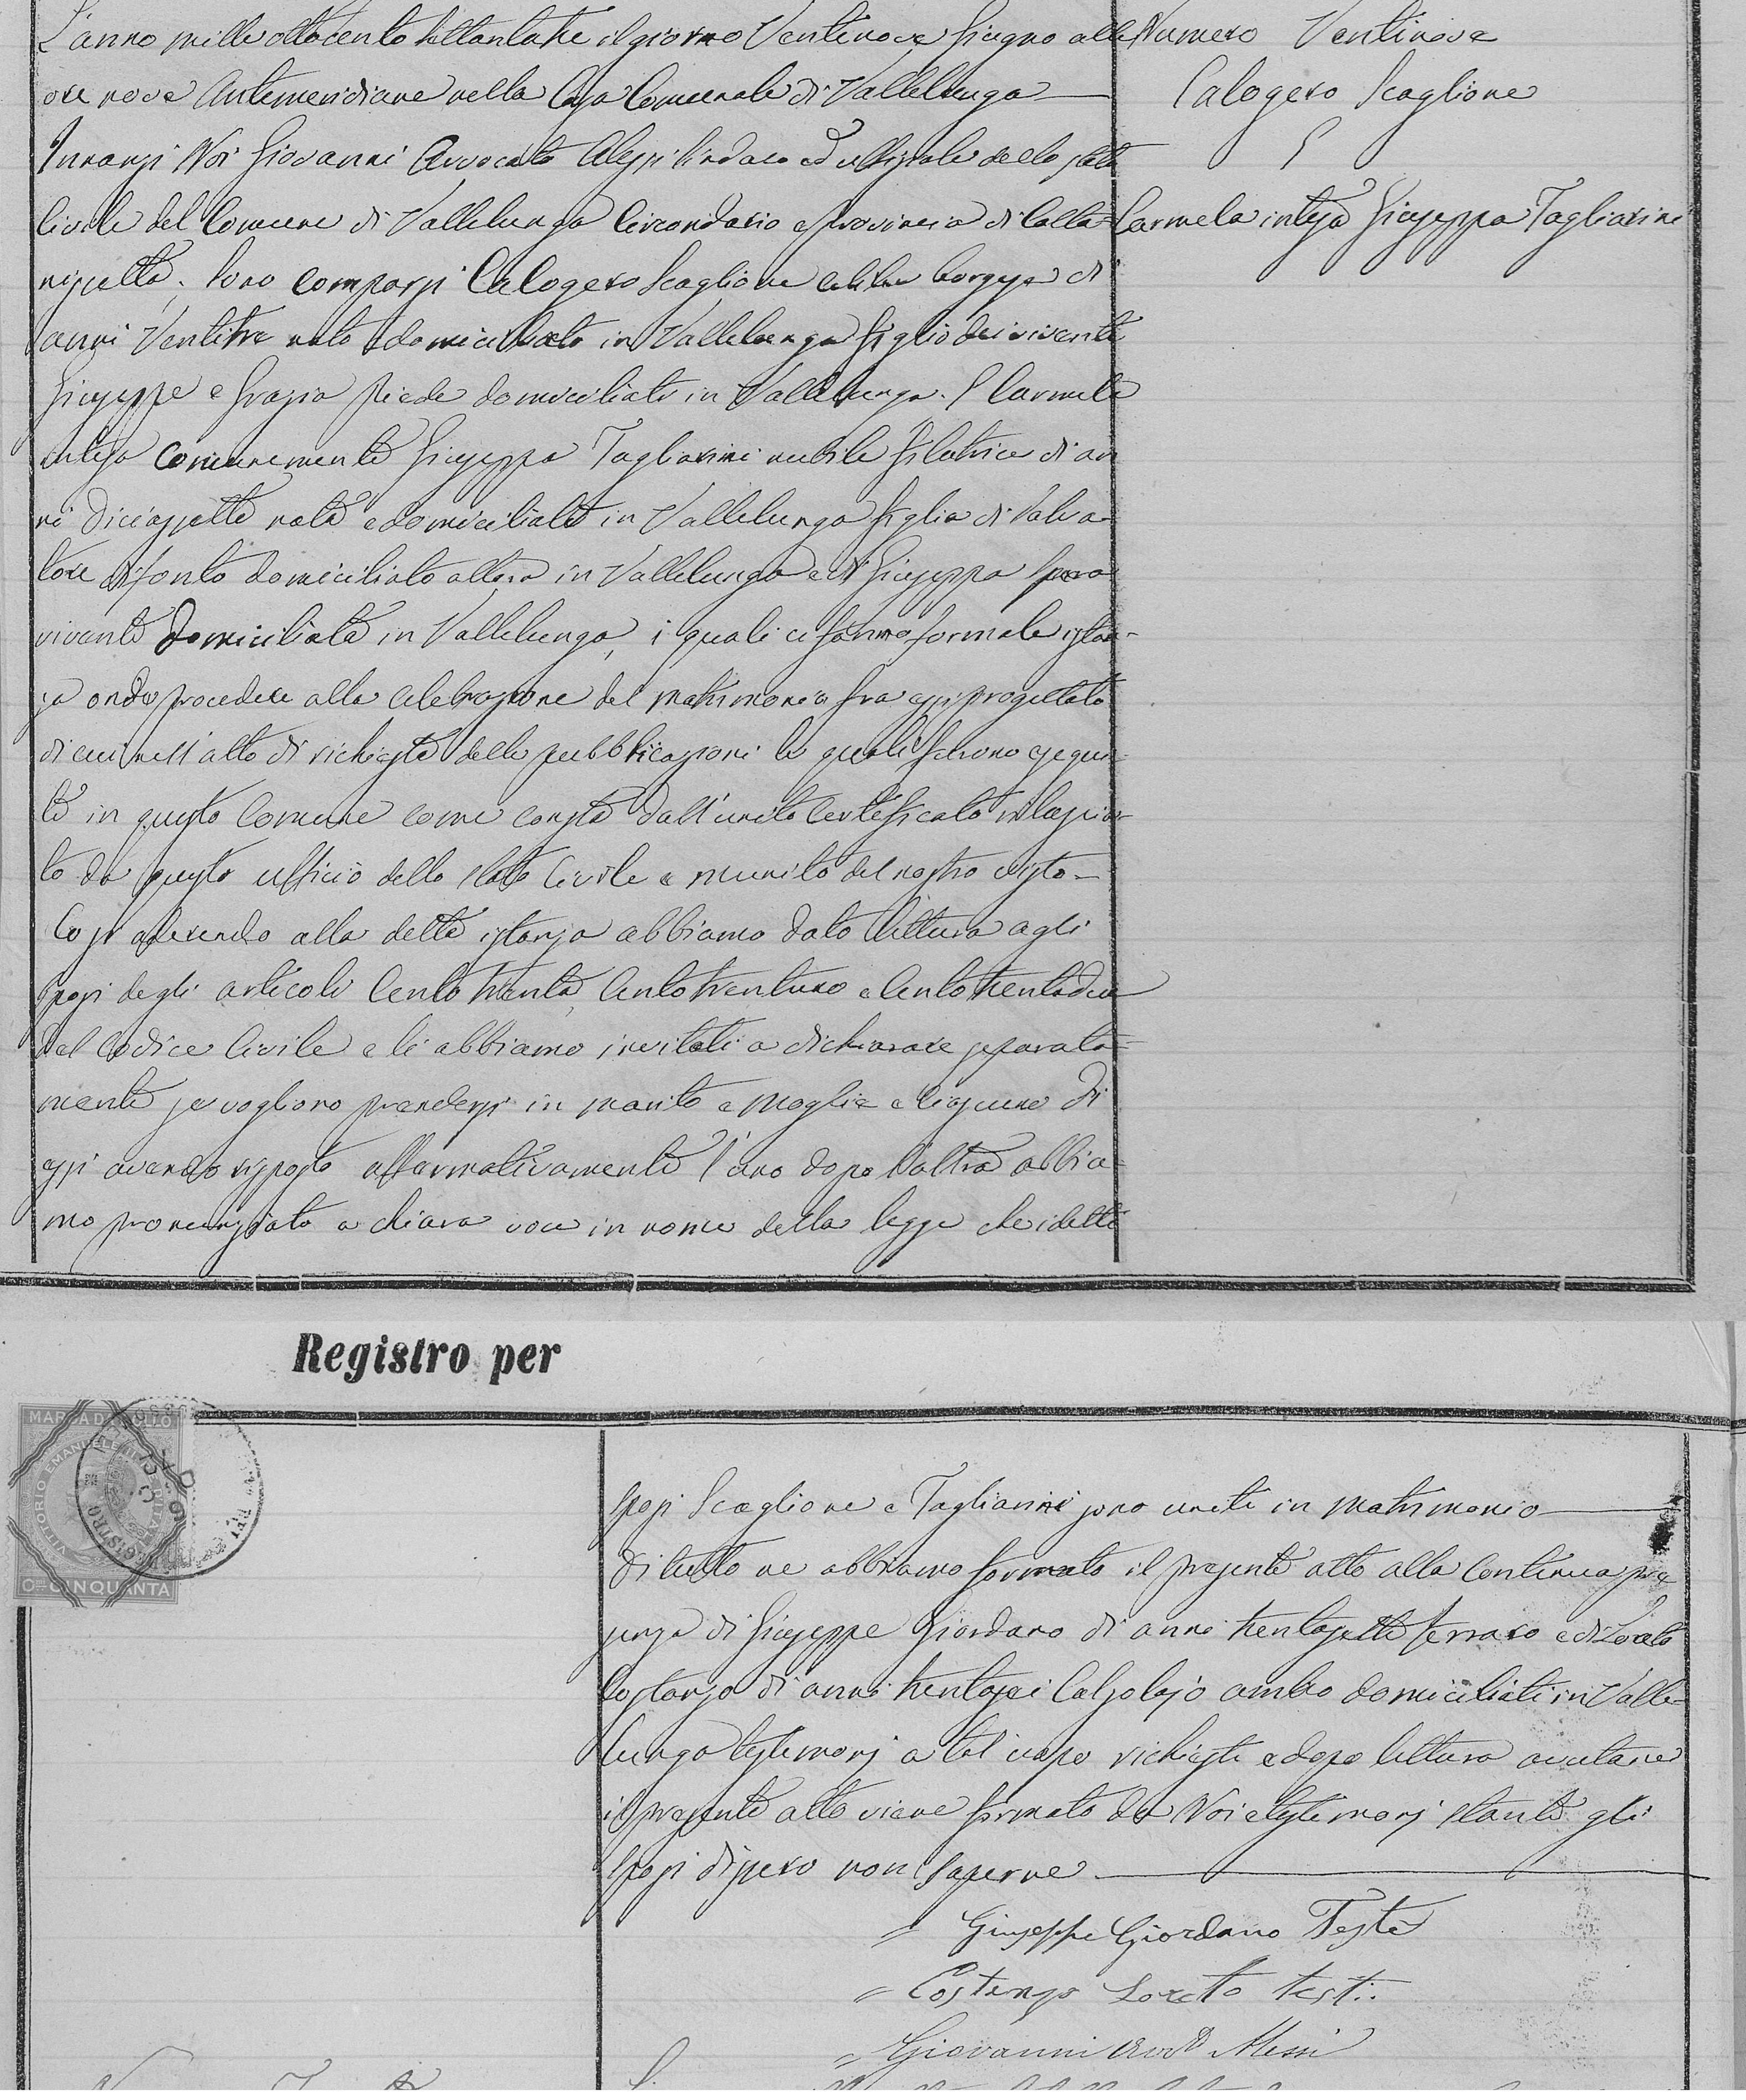 L'anno mille ottocento settantatre il giorno Ventinove Giugno alle
ore nove Antemeridiane nella Casa Comunale di Vallelunga
Innanzi Noi Giovanni Avvocato Alessi Sindaco ed uffiziale dello stato
Civile del Comune di Vallelunga Circondario e provincia di Calta=
nissetta, sono comparsi Calogero Scaglione celibe borgese di
anni Ventitre nato e domiciliato in Vallelunga figlio dei viventi
Giuseppe e Grazia domiciliati in Vallelunga. E Carmela
intesa comunemente Giuseppa Tagliarini nubile filatrice di an
ni diciassette nata e domiciliata in Vallelunga figlia di Salva=
tore difonto domiciliato allora in Vallelunga e di Giuseppa
vivente domiciliata in Vallelunga, i quali ci fanno formale istan-
za onde procedere alla celebrazione del matrimonio fra essi progettato
di cui nell'atto di richiesta delle pubblicazioni le quali furono esegui-
te in questo Comune come consta dall'unito Certificato rilascia-
to da questo ufficio dello Stato Civile e munito del nostro visto-
Così aderendo alla detta istanza abbiamo dato lettura agli
sposi degli articoli Cento trenta, Cento trentuno e Cento trentadue
del Codice Civile e li abbiamo invitati a dichiarare separata=
mente se vogliono prendersi in marito e moglie e ciascuno di
essi avendo risposto affermativamente l'uno dopo l'altra abbia=
mo pronunziato a chiara voce in nome della legge che i detti
Numero Ventinove
Calogero Scaglione
E
Carmela intesa Giuseppa Tagliarini
Registro per
MARCA DA BOLLO
VITTORIO EMANUELE II
REGISTRO
CINQUANTA
sposi Scaglione e Tagliarini sono uniti in matrimonio
di tutto ne abbiamo formato il presente atto alla continua pre
senza di Giuseppe Giordano di anni trentasette ferraro e di Loreto
Costanzo di anni trentasei Calzolajo ambo domiciliati in Valle=
lunga testimonj a tal uopo richiesti e dopo lettura avutane
il presente atto viene firmato da Noi e testimonj stante gli
sposi dissero non saperne
Giuseppe Giordano Teste
Costanzo Loreto testi:
Giovanni Avv. Alessi